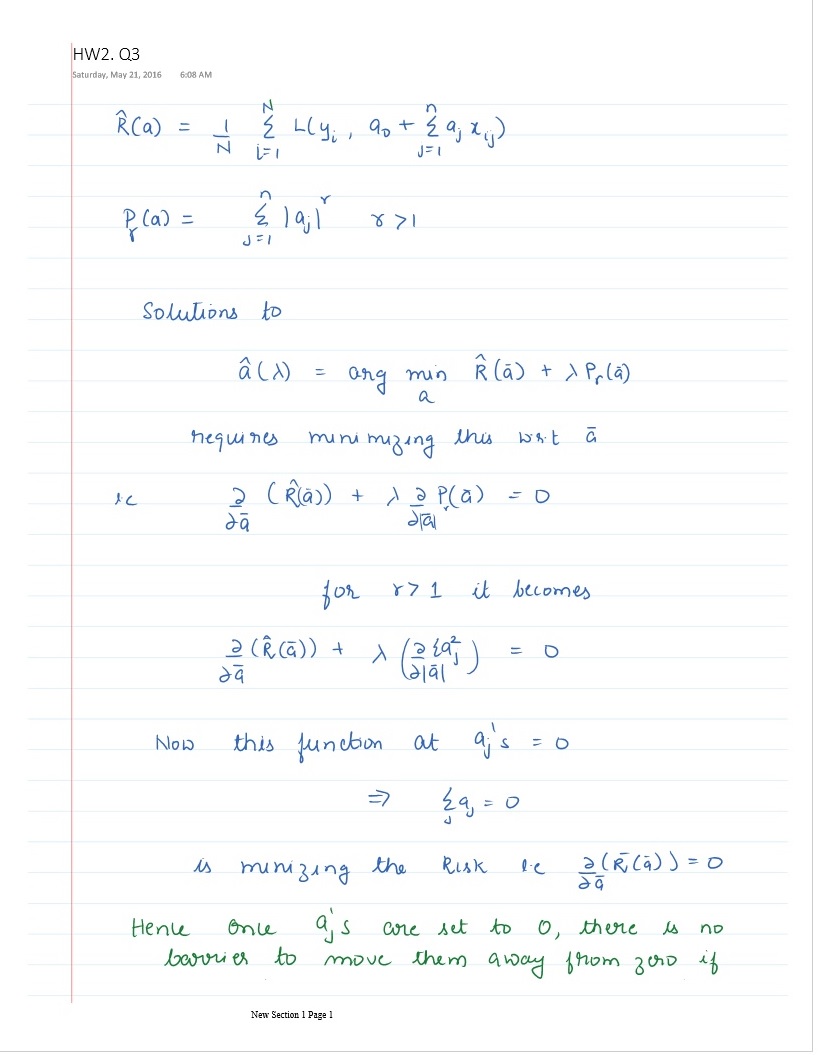 HW2. Q3
Saturday, May 21, 2016 6:08 AM
R̂(a) = 1/N Σ_{i=1}^{N} L(y_i, a_0 + Σ_{j=1}^{n} a_j x_{ij})
P_γ(a) = Σ_{j=1}^{n} |a_j|^γ γ > 1
Solutions to
â(λ) = arg min_a R̂(ā) + λ P_r(ā)
requires minimizing this w.r.t ā
i.e ∂/∂ā (R̂(ā)) + λ ∂/∂|ā| P_r(ā) = 0
for γ > 1 it becomes
∂/∂ā (R̂(ā)) + λ (∂/∂|ā| Σ a_j^2) = 0
Now this function at a_j's = 0
⇒ Σ_j a_j = 0
is minizing the Risk i.e ∂/∂ā (R̄(ā)) = 0
Hence once a_j's are set to 0, there is no
barrier to move them away from zero if
New Section 1 Page 1